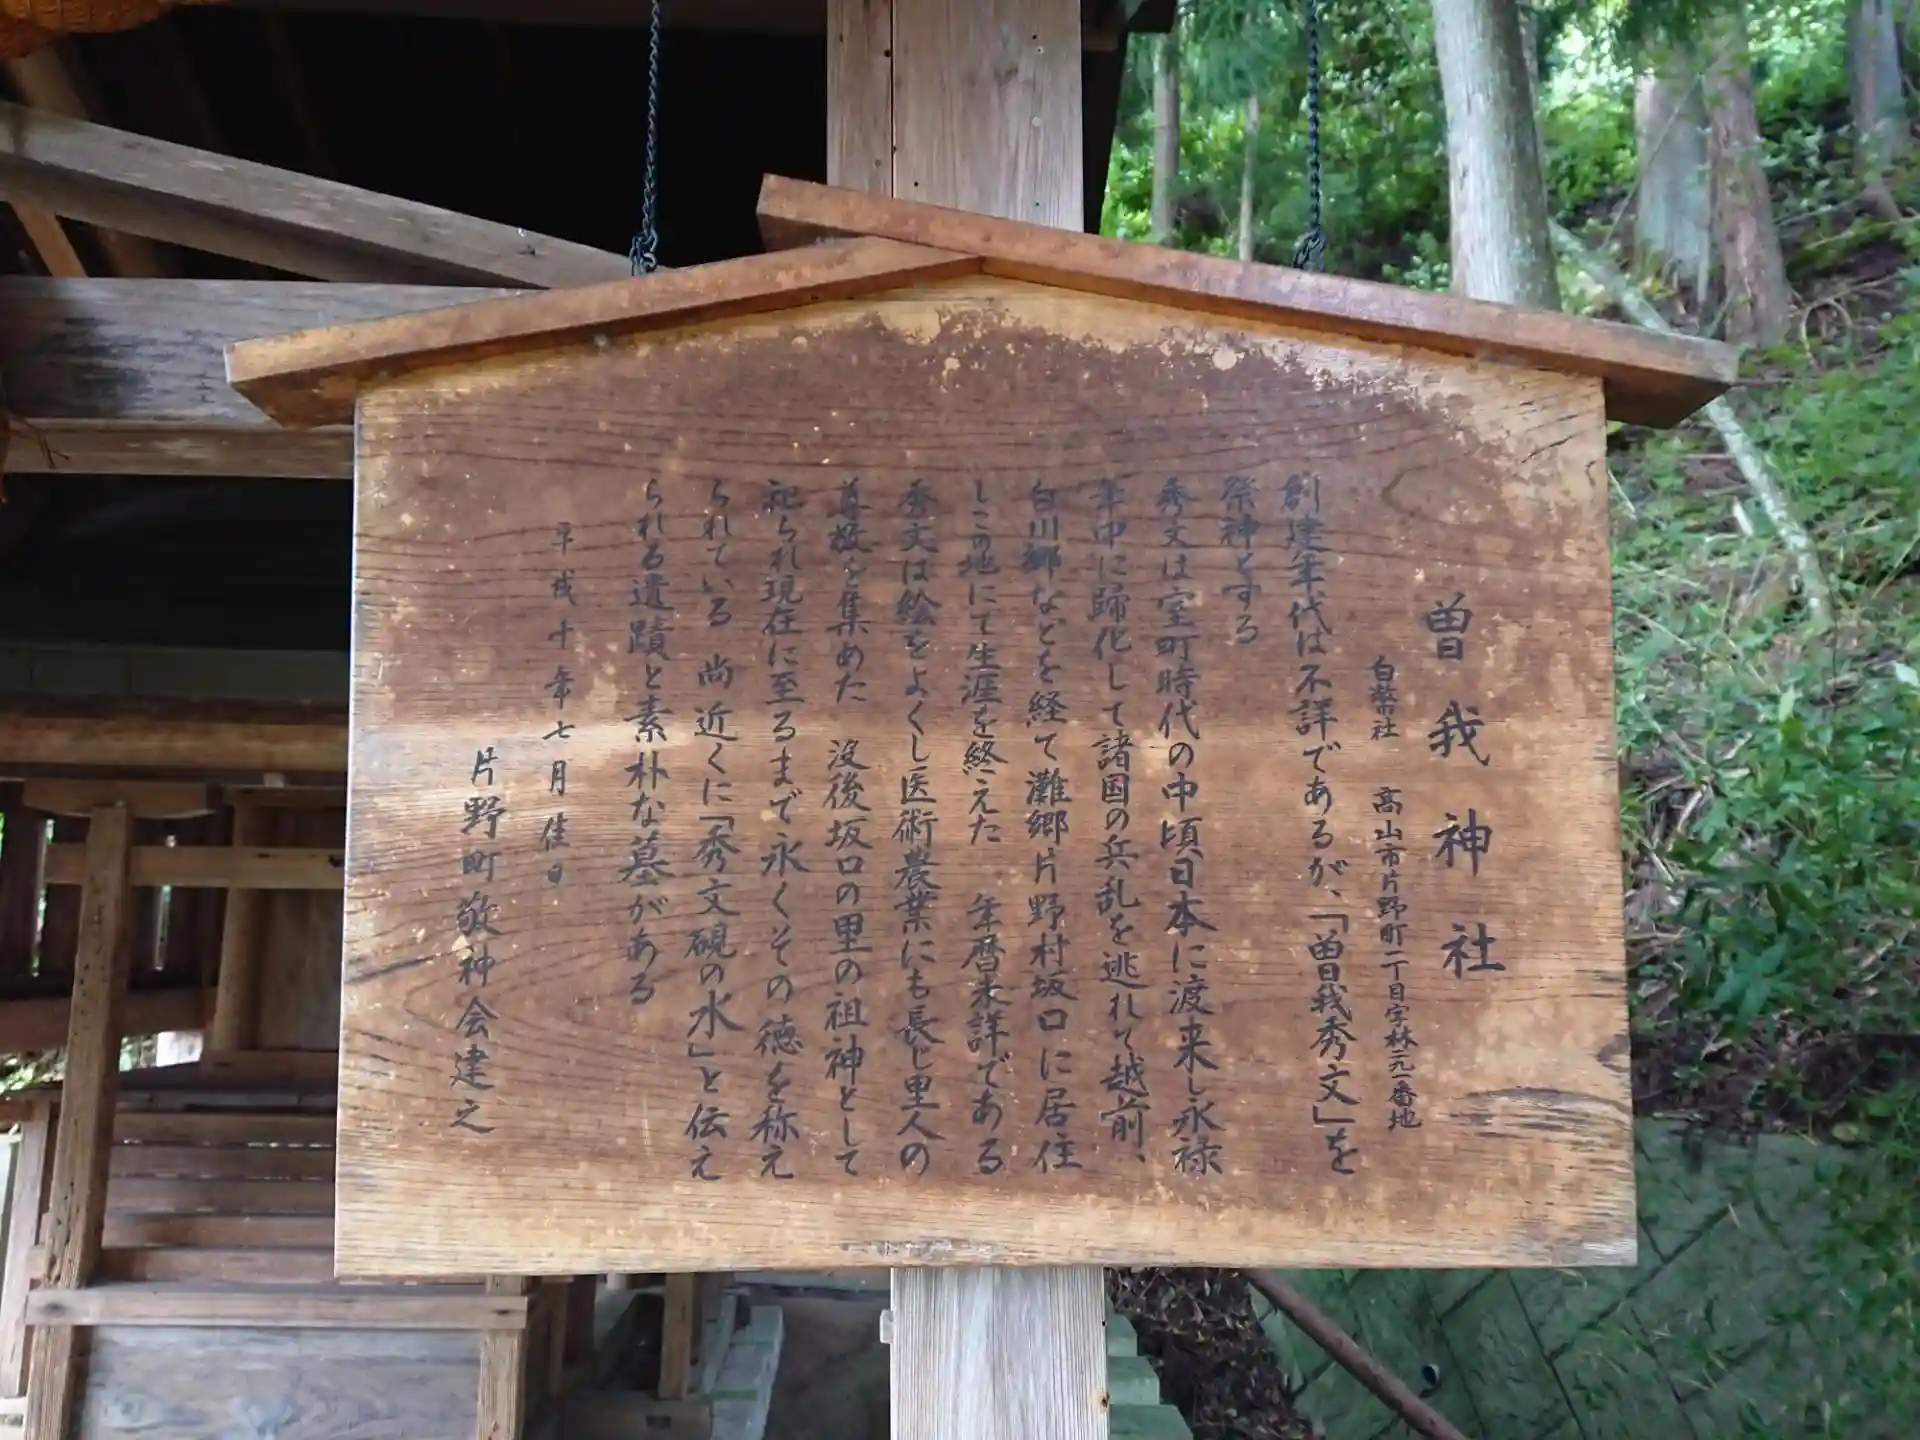 曽我神社
白幣社 高山市片野町一丁目字林二九一番地
創建年代は不詳であるが、「曽我秀文」を
祭神とする
秀文は室町時代の中頃日本に渡来し永禄
年中に歸化して諸国の兵乱を逃れて越前、
白川郷などを経て灘郷片野村坂口に居住
しこの地にて生涯を終えた 年暦未詳である
秀文は絵をよくし医術農業にも長じ里人の
尊敬を集めた 没後坂口の里の祖神として
祀られ現在に至るまで永くその徳を称え
られている 尚近くに「秀文硯の水」と伝え
られる遺蹟と素朴な墓がある
平成十年七月佳日
片野町敬神会建之